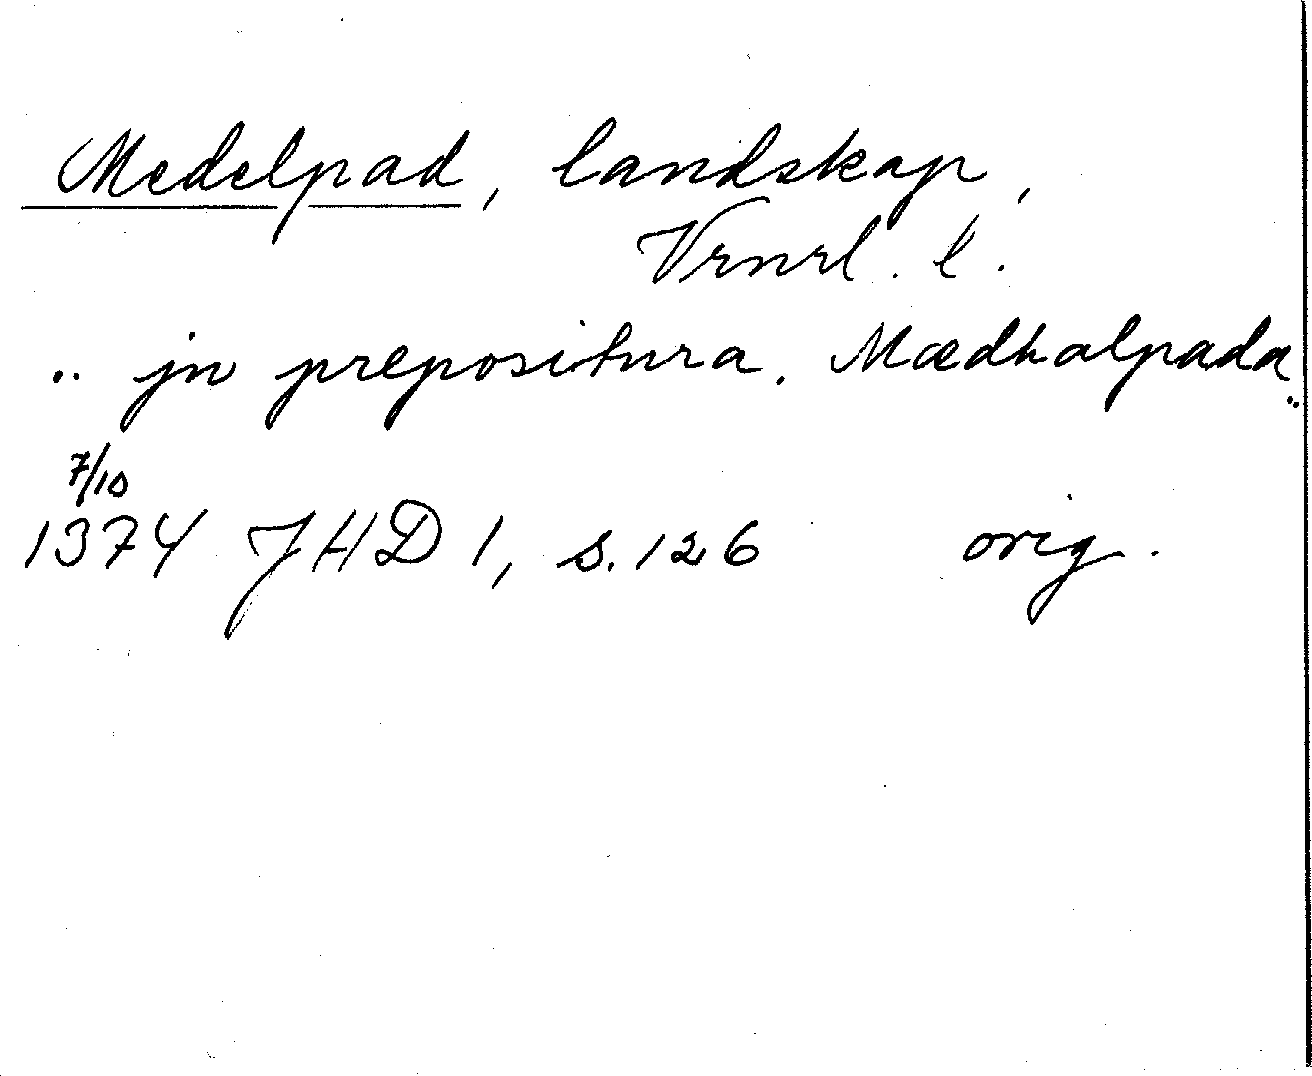 Medelpad, landskap,
Vrnrl. l.
.. jn prepositura. Mædhalpada ..
7/10
1374 JHD 1, s. 126 orig.